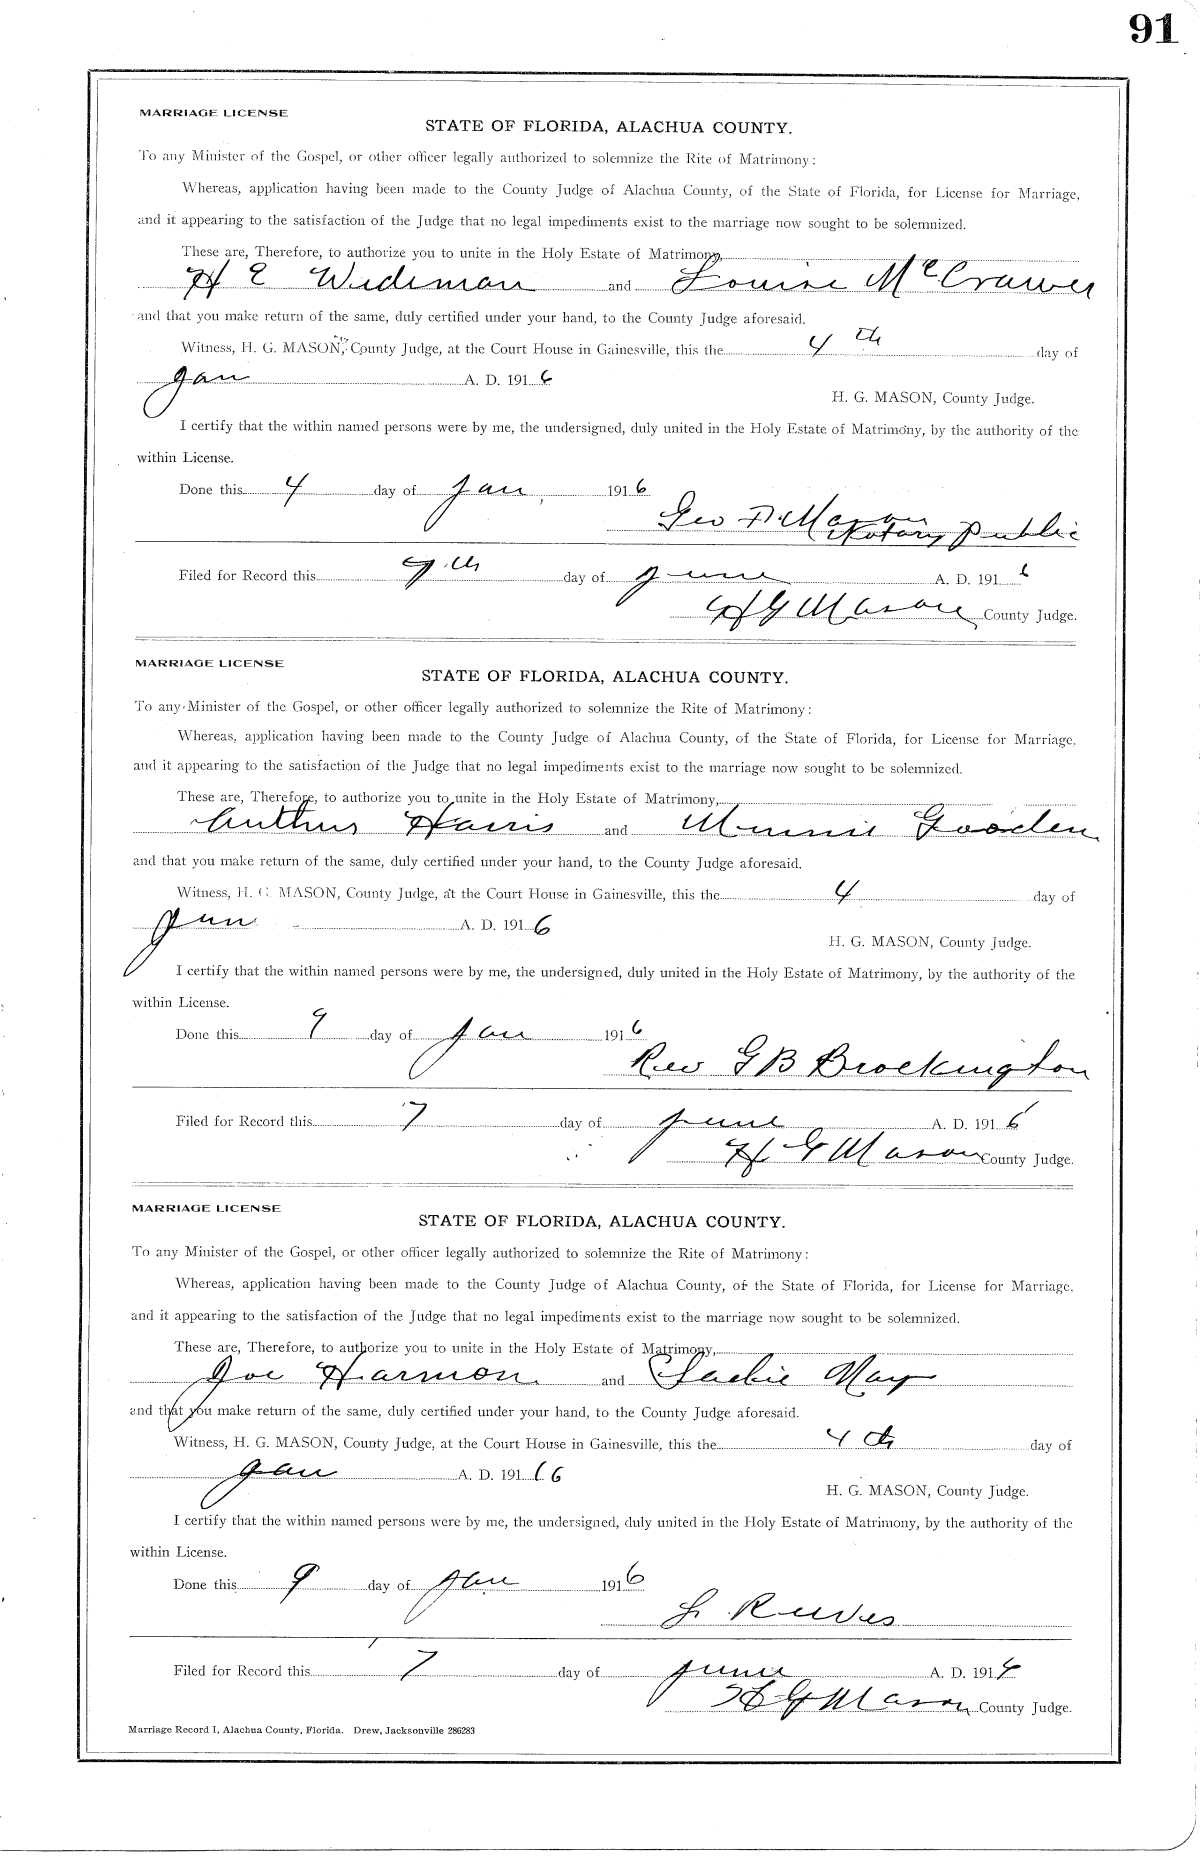 91
MARRIAGE LICENSE
STATE OF FLORIDA, ALACHUA COUNTY.
To any Minister of the Gospel, or other officer legally authorized to solemnize the Rite of Matrimony:
Whereas, application having been made to the County Judge of Alachua County, of the State of Florida, for License for Marriage,
and it appearing to the satisfaction of the Judge that no legal impediments exist to the marriage now sought to be solemnized.
These are, Therefore, to authorize you to unite in the Holy Estate of Matrimony,
H E Wideman and Louise McCrawer
and that you make return of the same, duly certified under your hand, to the County Judge aforesaid.
Witness, H. G. MASON, County Judge, at the Court House in Gainesville, this the 4th day of
Jan A. D. 1916
H. G. MASON, County Judge.
I certify that the within named persons were by me, the undersigned, duly united in the Holy Estate of Matrimony, by the authority of the
within License.
Done this 4 day of Jan, 1916
Geo Mason
Notary Public
Filed for Record this 7th day of June A. D. 1916
H G Mason County Judge.
MARRIAGE LICENSE
STATE OF FLORIDA, ALACHUA COUNTY.
To any Minister of the Gospel, or other officer legally authorized to solemnize the Rite of Matrimony:
Whereas, application having been made to the County Judge of Alachua County, of the State of Florida, for License for Marriage,
and it appearing to the satisfaction of the Judge that no legal impediments exist to the marriage now sought to be solemnized.
These are, Therefore, to authorize you to unite in the Holy Estate of Matrimony,
Authur Harris and Minnie Gooden
and that you make return of the same, duly certified under your hand, to the County Judge aforesaid.
Witness, H. G. MASON, County Judge, at the Court House in Gainesville, this the 4 day of
Jan A. D. 1916
H. G. MASON, County Judge.
I certify that the within named persons were by me, the undersigned, duly united in the Holy Estate of Matrimony, by the authority of the
within License.
Done this 9 day of Jan 1916
Rev G B Brockington
Filed for Record this 7 day of June A. D. 1916
H G Mason County Judge.
MARRIAGE LICENSE
STATE OF FLORIDA, ALACHUA COUNTY.
To any Minister of the Gospel, or other officer legally authorized to solemnize the Rite of Matrimony:
Whereas, application having been made to the County Judge of Alachua County, of the State of Florida, for License for Marriage,
and it appearing to the satisfaction of the Judge that no legal impediments exist to the marriage now sought to be solemnized.
These are, Therefore, to authorize you to unite in the Holy Estate of Matrimony,
Joe Harmon and Sackie May
and that you make return of the same, duly certified under your hand, to the County Judge aforesaid.
Witness, H. G. MASON, County Judge, at the Court House in Gainesville, this the 4th day of
Jan A. D. 19116
H. G. MASON, County Judge.
I certify that the within named persons were by me, the undersigned, duly united in the Holy Estate of Matrimony, by the authority of the
within License.
Done this 9 day of Jan 1916
S Reeves
Filed for Record this 7 day of June A. D. 1916
H G Mason County Judge.
Marriage Record I, Alachua County, Florida. Drew, Jacksonville 286283